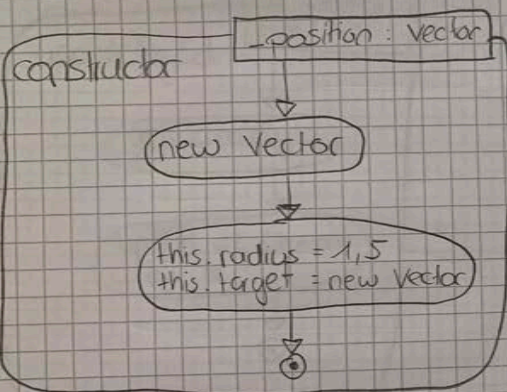 _position : vector
constructor
new Vector
this.radius = 1,5
this.target = new Vector